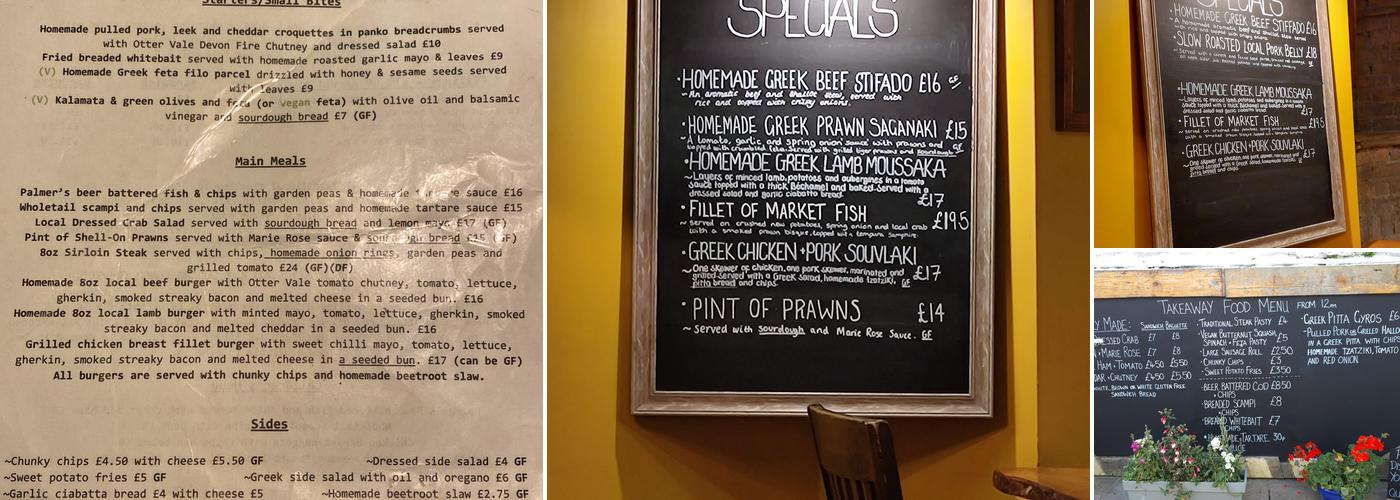 Starters/Small Bites
Homemade pulled pork, leek and cheddar croquettes in panko breadcrumbs served
with Otter Vale Devon Fire Chutney and dressed salad £10
Fried breaded whitebait served with homemade roasted garlic mayo & leaves £9
(V) Homemade Greek feta filo parcel drizzled with honey & sesame seeds served
with leaves £9
(V) Kalamata & green olives and feta (or vegan feta) with olive oil and balsamic
vinegar and sourdough bread £7 (GF)
Main Meals
Palmer's beer battered fish & chips with garden peas & homemade tartare sauce £16
Wholetail scampi and chips served with garden peas and homemade tartare sauce £15
Local Dressed Crab Salad served with sourdough bread and lemon mayo £17 (GF)
Pint of Shell-On Prawns served with Marie Rose sauce & sourdough bread £15 (GF)
8oz Sirloin Steak served with chips, homemade onion rings, garden peas and
grilled tomato £24 (GF)(DF)
Homemade 8oz local beef burger with Otter Vale tomato chutney, tomato, lettuce,
gherkin, smoked streaky bacon and melted cheese in a seeded bun. £16
Homemade 8oz local lamb burger with minted mayo, tomato, lettuce, gherkin, smoked
streaky bacon and melted cheddar in a seeded bun. £16
Grilled chicken breast fillet burger with sweet chilli mayo, tomato, lettuce,
gherkin, smoked streaky bacon and melted cheese in a seeded bun. £17 (can be GF)
All burgers are served with chunky chips and homemade beetroot slaw.
Sides
~Chunky chips £4.50 with cheese £5.50 GF ~Dressed side salad £4 GF
~Sweet potato fries £5 GF ~Greek side salad with oil and oregano £6 GF
~Garlic ciabatta bread £4 with cheese £5 ~Homemade beetroot slaw £2.75 GF
SPECIALS
·HOMEMADE GREEK BEEF STIFADO £16 GF
~An aromatic beef and shallot stew, served with
rice and topped with crispy onions.
·HOMEMADE GREEK PRAWN SAGANAKI £15
~A tomato, garlic and spring onion sauce with prawns and
topped with crumbled feta. Served with grilled tiger prawns and sourdough. GF
·HOMEMADE GREEK LAMB MOUSSAKA
~Layers of minced lamb, potatoes and aubergines in a tomato
sauce topped with a thick Béchamel and baked. Served with a
dressed salad and garlic ciabatta bread. £17
·FILLET OF MARKET FISH £19.5
~served on crushed new potatoes, spring onion and local crab
with a smoked prawn bisque, topped with tempura samphire.
·GREEK CHICKEN + PORK SOUVLAKI
~One skewer of chicken, one pork skewer, marinated and £17
grilled. Served with a Greek Salad, homemade tzatziki,
pitta bread and chips. GF
·PINT OF PRAWNS £14
~Served with sourdough and Marie Rose Sauce. GF
SPECIALS
·HOMEMADE GREEK BEEF STIFADO £16
~A homemade aromatic beef and shallot stew served
rice and topped with crispy onions.
·SLOW ROASTED LOCAL PORK BELLY £18
·HOMEMADE GREEK LAMB MOUSSAKA
~Layers of minced lamb, potatoes and aubergines in a tomato
sauce topped with a thick Béchamel and baked. Served with
dressed salad and garlic ciabatta bread. £17
·FILLET OF MARKET FISH £19.5
~served on crushed new potatoes, spring onion and local crab
with a smoked prawn bisque, topped with tempura samphire.
·GREEK CHICKEN + PORK SOUVLAKI
~One skewer of chicken, one pork, marinated and £17
grilled. Served with a Greek Salad, homemade tzatziki,
pitta bread and chips.
TAKEAWAY FOOD MENU FROM 12pm
Y MADE: SANDWICH BAGUETTE
ESSED CRAB £7 £8
·MARIE ROSE £7 £8
HAM + TOMATO £4.50 £5.50
DAR + CHUTNEY £4.50 £5.50
WHITE, BROWN OR WHITE GLUTEN FREE
SANDWICH BREAD
·TRADITIONAL STEAK PASTY £4
·VEGAN BUTTERNUT SQUASH,
SPINACH + FETA PASTY £5
·LARGE SAUSAGE ROLL £2.50
·CHUNKY CHIPS £3
·SWEET POTATO FRIES £3.50
·BEER BATTERED COD £8.50
+ CHIPS
·BREADED SCAMPI £8
+ CHIPS
·BREADED WHITEBAIT £7
+ CHIPS
TARTARE 30p
·GREEK PITTA GYROS £6
~PULLED PORK OR GRILLED HALLO
IN A GREEK PITTA WITH CHIPS
HOMEMADE TZATZIKI, TOMATO
AND RED ONION